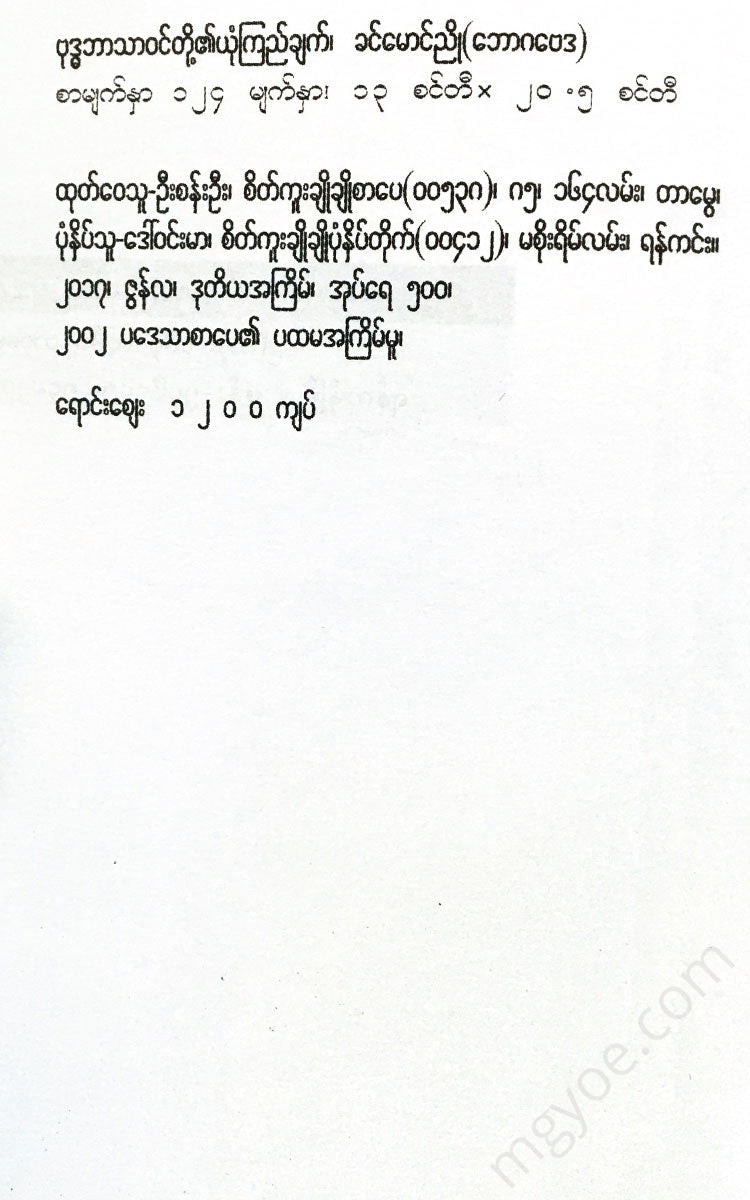 ဗုဒ္ဓဘာသာဝင်တို့၏ယုံကြည်ချက်၊ ခင်မောင်ညို(ဘောဂဗေဒ)
စာမျက်နှာ ၁၂၄ မျက်နှာ၊ ၁၃ စင်တီ× ၂၀ .၅ စင်တီ
ထုတ်ဝေသူ-ဦးစန်းဦး၊ စိတ်ကူးချိုချိုစာပေ(၀၀၅၃၈)၊ ဂ၅၊ ၁၆၄လမ်း၊ တာမွေ၊
ပုံနှိပ်သူ-ဒေါ်ဝင်းမာ၊ စိတ်ကူးချိုချိုပုံနှိပ်တိုက်(၀၀၄၁၂)၊ မစိုးရိမ်လမ်း၊ ရန်ကင်း။
၂၀၁၇၊ ဇွန်လ၊ ဒုတိယအကြိမ်၊ အုပ်ရေ ၅၀၀၊
၂၀၀၂ ပဒေသာစာပေ၏ ပထမအကြိမ်မူ၊
ရောင်းဈေး ၁ ၂ ၀ ၀ ကျပ်
mgyoe.com